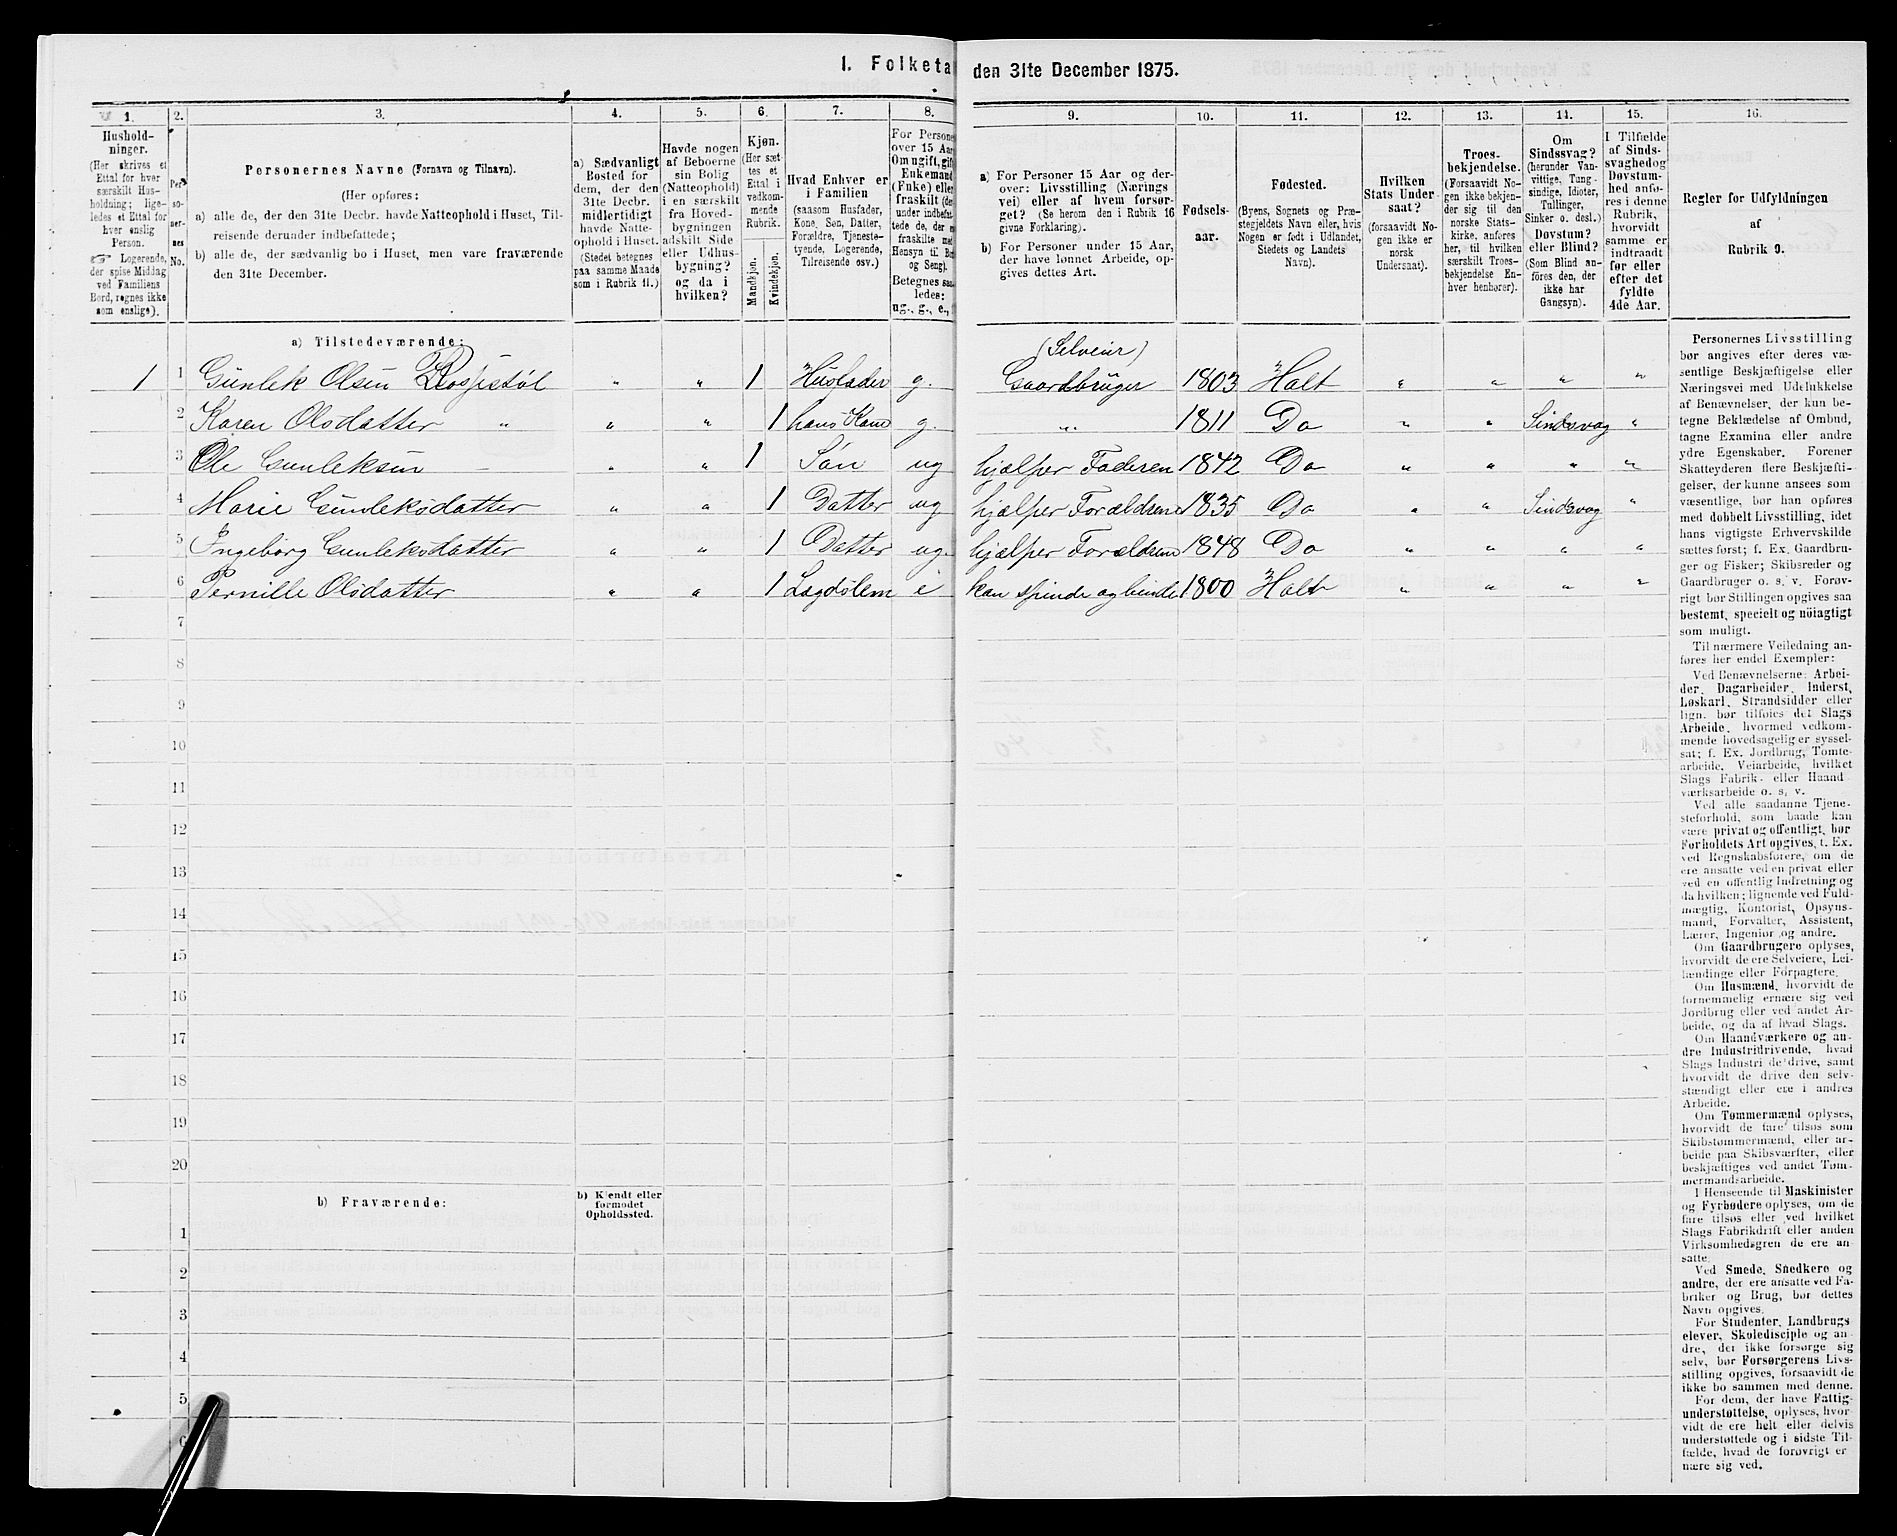 1. Folketa den 31te December 1875.
1. 2. 3. 4. 5. 6. 7. 8. 9. 10. 11. 12. 13. 14. 15. 16.
Hushold-
ninger.
(Her skrives et
Ettal for hver
særskilt Hus-
holdning; lige-
ledes et Ettal for
hver enslig
Person.
Logerende,
der spise Middag
ved Familiens
Bord, regnes ikke
som enslige).
Per-
so-
ner-
nes
No.
Personernes Navne (Fornavn og Tilnavn).
(Her opføres:
a) alle de, der den 31te Decbr. havde Natteophold i Huset, Til-
reisende derunder indbefattede;
b) alle de, der sædvanlig bo i Huset, men vare fraværende
den 31te December.
a) Sædvanligt
Bosted for
dem, der den
31te Decbr.
midlertidigt
havde Natte-
ophold i Huset.
(Stedet betegnes
paa samme Maade
som i Rubrik 11.)
Havde nogen
af Beboerne
sin Bolig
(Natteophold)
i en særskilt
fra Hoved-
bygningen
adskilt Side
eller Udhus-
bygning?
og da i
hvilken?
Kjøn.
(Her sæt-
tes et
Ettal i
vedkom-
mende
Rubrik.
Mandkjøn.
Kvindekjøn.
Hvad Enhver er
i Familien
(saasom Husfader,
Kone, Søn, Datter,
Forældre, Tjeneste-
tyende, Logerende,
Tilreisende osv.)
For Persone
over 15 Aar
Om ugift, gift
Enkemand
(Enke) elle
fraskilt (de
under indbefat
tede de, der e
fraskilte med
Hensyn til Bo
og Seng).
Betegnes saa
ledes:
ug., g., e.,
a) For Personer 15 Aar og der-
over: Livsstilling (Nærings
vei) eller af hvem forsør-
get? (Se herom den i Rubrik 16
givne Forklaring).
b) For Personer under 15 Aar,
der have lønnet Arbeide, op-
gives dettes Art.
Fødsels-
aar.
Fødested.
(Byens, Sognets og Præ-
stegjeldets Navn eller, hvis
Nogen er født i Udlandet,
Stedets og Landets
Navn).
Hvilken
Stats Under-
saat?
(forsaavidt No-
gen ikke er
norsk
Undersaat).
Troes-
bekjendelse.
(Forsaavidt No-
gen ikke bekjen-
der sig til den
norske Stats-
kirke, anføres
her, til hvilken
særskilt Troes-
bekjendelse En-
hver henhører).
Om
Sindssvag?
(herunder Van-
vittige, Tung-
sindige, Idioter,
Tullinger,
Sinker o. desl.)
Døvstum?
eller Blind?
(Som Blind an-
føres den, der
ikke har
Gangsyn).
I Tilfælde
af Sinds-
svaghed og
Døvstum-
hed anfø-
res i denne
Rubrik,
hvorvidt
samme er
indtraadt
før eller
efter det
fyldte
4de Aar.
Regler for Udfyldningen
af
Rubrik 9.
a) Tilstedeværende:
(Selveier)
1 1 Gunlek Olsen " " 1 Husfader g. Gaardbruger 1803 Holt " " " "
2 Karen Olsdatter " " " 1 hans Kone g. " 1811 Do " " Sindsvag "
3 Ole Gunleksen - " " 1 Søn ug hjælper Faderen 1842 Do " " " "
4 Marie Gunleksdatter " " 1 Datter ug. hjælper Forældrene 1835 Do " " Sindsvag "
5 Ingeborg Gunleksdatter " " 1 Datter ug. hjælper Forældrene 1848 Do " " " "
6 Pernille Olsdatter " " 1 Lægdslem kan spinde og binde 1800 Holt " " " "
7
8
9
10
11
12
13
14
15
16
17
18
19
20
b) Fraværende:
b) Kjendt eller
formodet
Opholdssted.
1
2
3
4
5
6
Personernes Livsstilling
bør angives efter deres væ-
sentlige Beskjæftigelse eller
Næringsvei med Udelukkelse
af Benævnelser, der kun be-
tegne Beklædelse af Ombud,
tagne Examina eller andre
ydre Egenskaber. Forener
Skatteyderen flere Beskjæfti-
gelser, der kunne ansees som
væsentlige, bør han opføres
med dobbelt Livsstilling, idet
hans vigtigste Erhvervskilde
sættes først; f. Ex. Gaardbru-
ger og Fisker; Skibsreder og
Gaardbruger o. s. v. Forøv-
rigt bør Stillingen opgives saa
bestemt, specielt og nöiagtigt
som muligt.
Til nærmere Veiledning an-
føres her endel Exempler:
Ved Benævnelserne: Arbei-
der, Dagarbeider, Inderst,
Løskarl, Strandsidder eller
lign. bør tilføies det Slags
Arbeide, hvormed vedkom-
mende hovedsagelig er syssel-
sat; f. Ex. Jordbrug, Tomte-
arbeide, Veiarbeide, hvilket
Slags Fabrik- eller Haand
værksarbeide o. s. v.
Ved alle saadanne Tjene-
steforhold, som baade kan
være privat og offentligt, bør
Forholdets Art opgives, t. Ex.
ved Regnskabsførere, om de
ere ansatte ved en privat eller
ved en offentlig Indretning og
da hvilken; lignende ved Fuld-
mægtig, Kontorist, Opsyns-
mand, Forvalter, Assistent,
Lærer, Ingeniør og andre.
Om Gaardbrugere oplyses,
hvorvidt de ere Selveiere, Lei-
lændinge eller Forpagtere.
Om Husmænd, hvorvidt de
fornemmelig ernære sig ved
Jordbrug eller ved andet Ar-
beide, og da af hvad Slags.
Om Haandværkere og an-
dre Industridrivende, hvad
Slags Industri de drive, samt
hvorvidt de drive den selv-
stændigt eller ere i andres
Arbeide.
Om Tømmermænd oplyses,
hvorvidt de fare tilsøs som
Skibstømmermænd, eller ar-
beide paa Skibsværfter, eller
beskjæftiges ved andet Tøm-
mermandsarbeide.
I Henseende til Maskinister
og Fyrbødere oplyses, om de
fare tilsøs eller ved hvilket
Slags Fabrikdrift eller anden
Virksomhedsgren de ere an-
satte.
Ved Smede, Snedkere og
andre, der ere ansatte ved Fa-
briker og Brug, bør dettes
Navn opgives.
For Studenter, Landbrugs
elever, Skoledisciple og an-
dre, der ikke forsørge sig
selv, bør Forsørgerens Livs-
stilling opgives, forsaavidt de
ikke bo sammen med denne.
For dem, der have Fattig-
understøttelse, oplyses, hvor-
vidt de ere helt eller delvis
understøttede og i sidste Til-
fælde, hvad de forøvrigt er
nære sig ved.